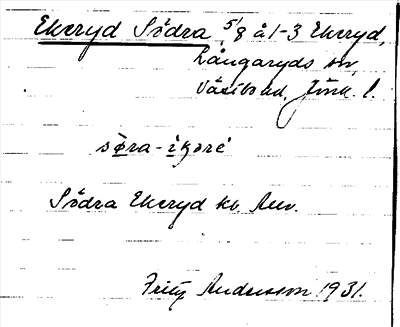 Ekeryd Södra 5/8 å 1-3 Ekeryd,
Långaryds sn,
Västbo hd, Jönk. l.
sø̀ra-ìkəré
Södra Ekeryd kb. Auv.
Fritz Andersson 1931.